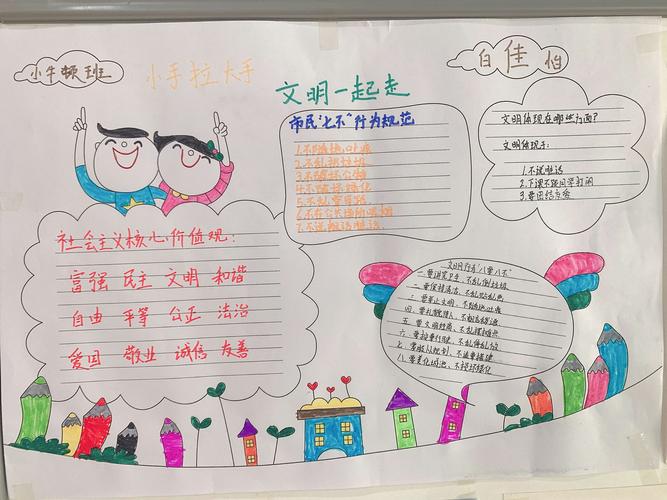 小牛顿班
小手拉大手
文明一起走
白佳怡
市民"七不"行为规范
1.不随地吐痰
2.不乱扔垃圾
3.不损坏公物
4.不破坏绿化
5.不乱穿马路
6.不在公共场所吸烟
7.不说
文明体现在哪些方面?
文明体现于:
1.不说脏话
2.下课不跟同学打闹
3.要团结友爱
社会主义核心价值观:
富强 民主 文明 和谐
自由 平等 公正 法治
爱国 敬业 诚信 友善
文明行为"八要八不"
一.要讲究卫生、不乱倒垃圾
二.要保持清洁、不乱贴乱画
三.要举止文明、不随地吐痰
四.要礼貌待人、不
五.要文明经商、不乱摆摊点
六.要按章行驶、不乱停乱放
七.要服从规划、不违章搭建
八.要美化、不毁坏绿化